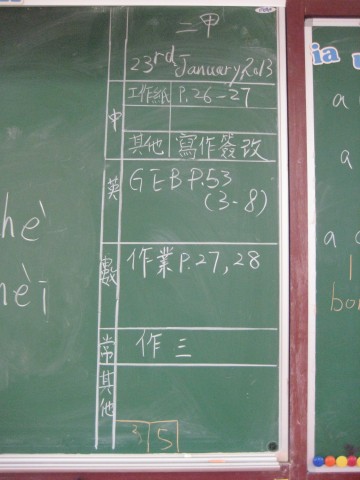 二甲
23rd January 2013
中
工作紙 P.26-27
其他 寫作簽改
英
GEB P.53
(3-8)
數
作業 P.27,28
常
作三
其他
5
hè
a
a
a
bo